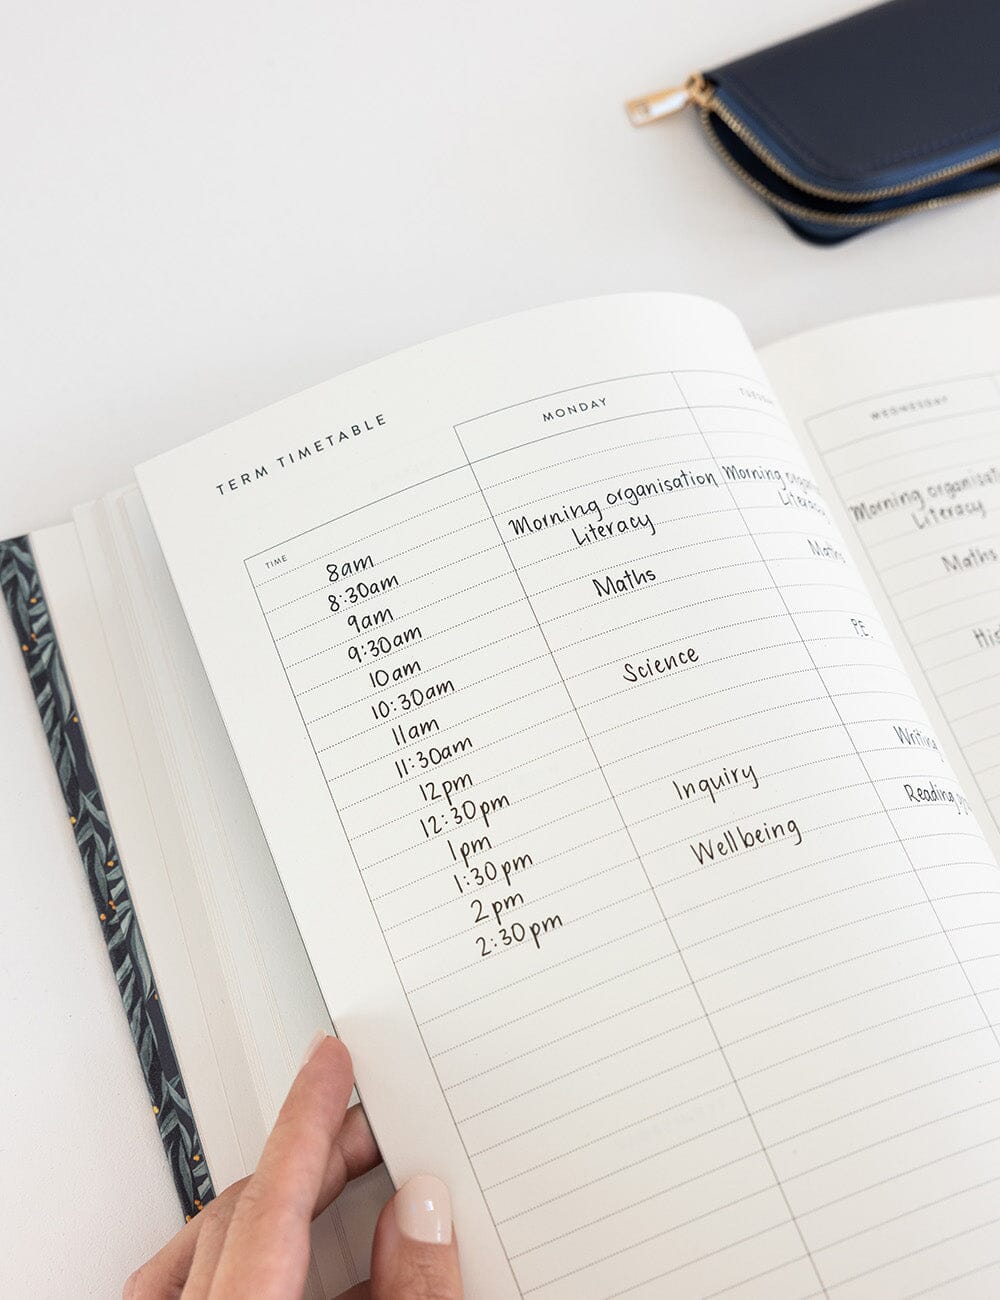 TERM TIMETABLE
TIME
8am
8:30am
9am
9:30am
10am
10:30am
11am
11:30am
12pm
12:30pm
1pm
1:30pm
2pm
2:30pm
MONDAY
Morning organisation
Literacy
Maths
Science
Inquiry
Wellbeing
Morning
Literacy
Maths
P.E.
Writing
Reading
WEDNESDAY
Morning
Literacy
Maths